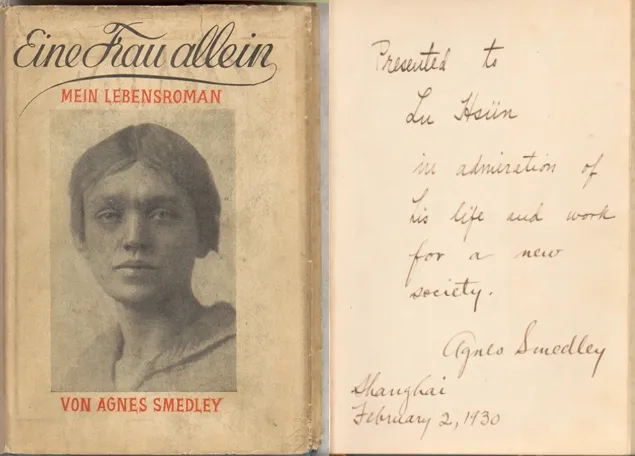 Eine Frau allein
MEIN LEBENSROMAN
VON AGNES SMEDLEY
Presented to
Lu Hsün
in admiration of
his life and work
for a new
society.
Agnes Smedley
Shanghai
February 2, 1930